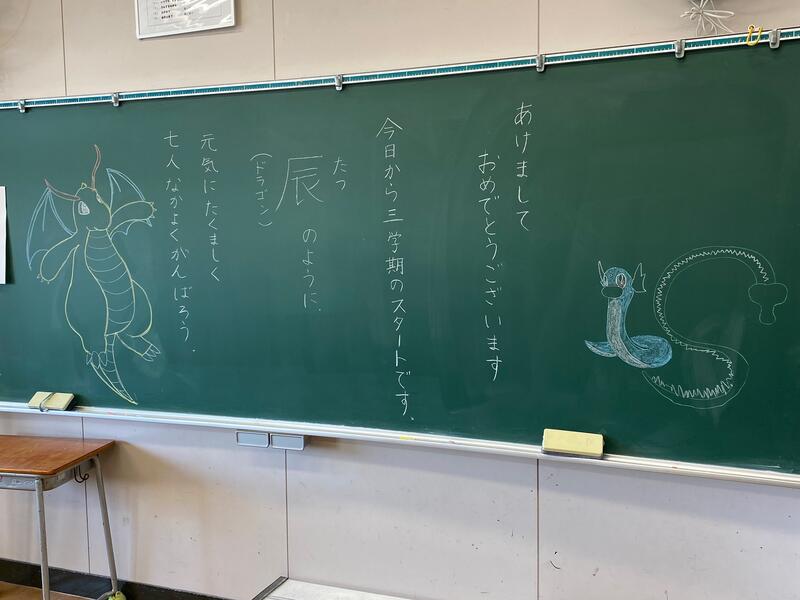 あけまして
おめでとうございます
今日から三学期のスタートです、
たつ
辰のように、
(ドラゴン)
元気にたくましく
七人なかよくがんばろう.